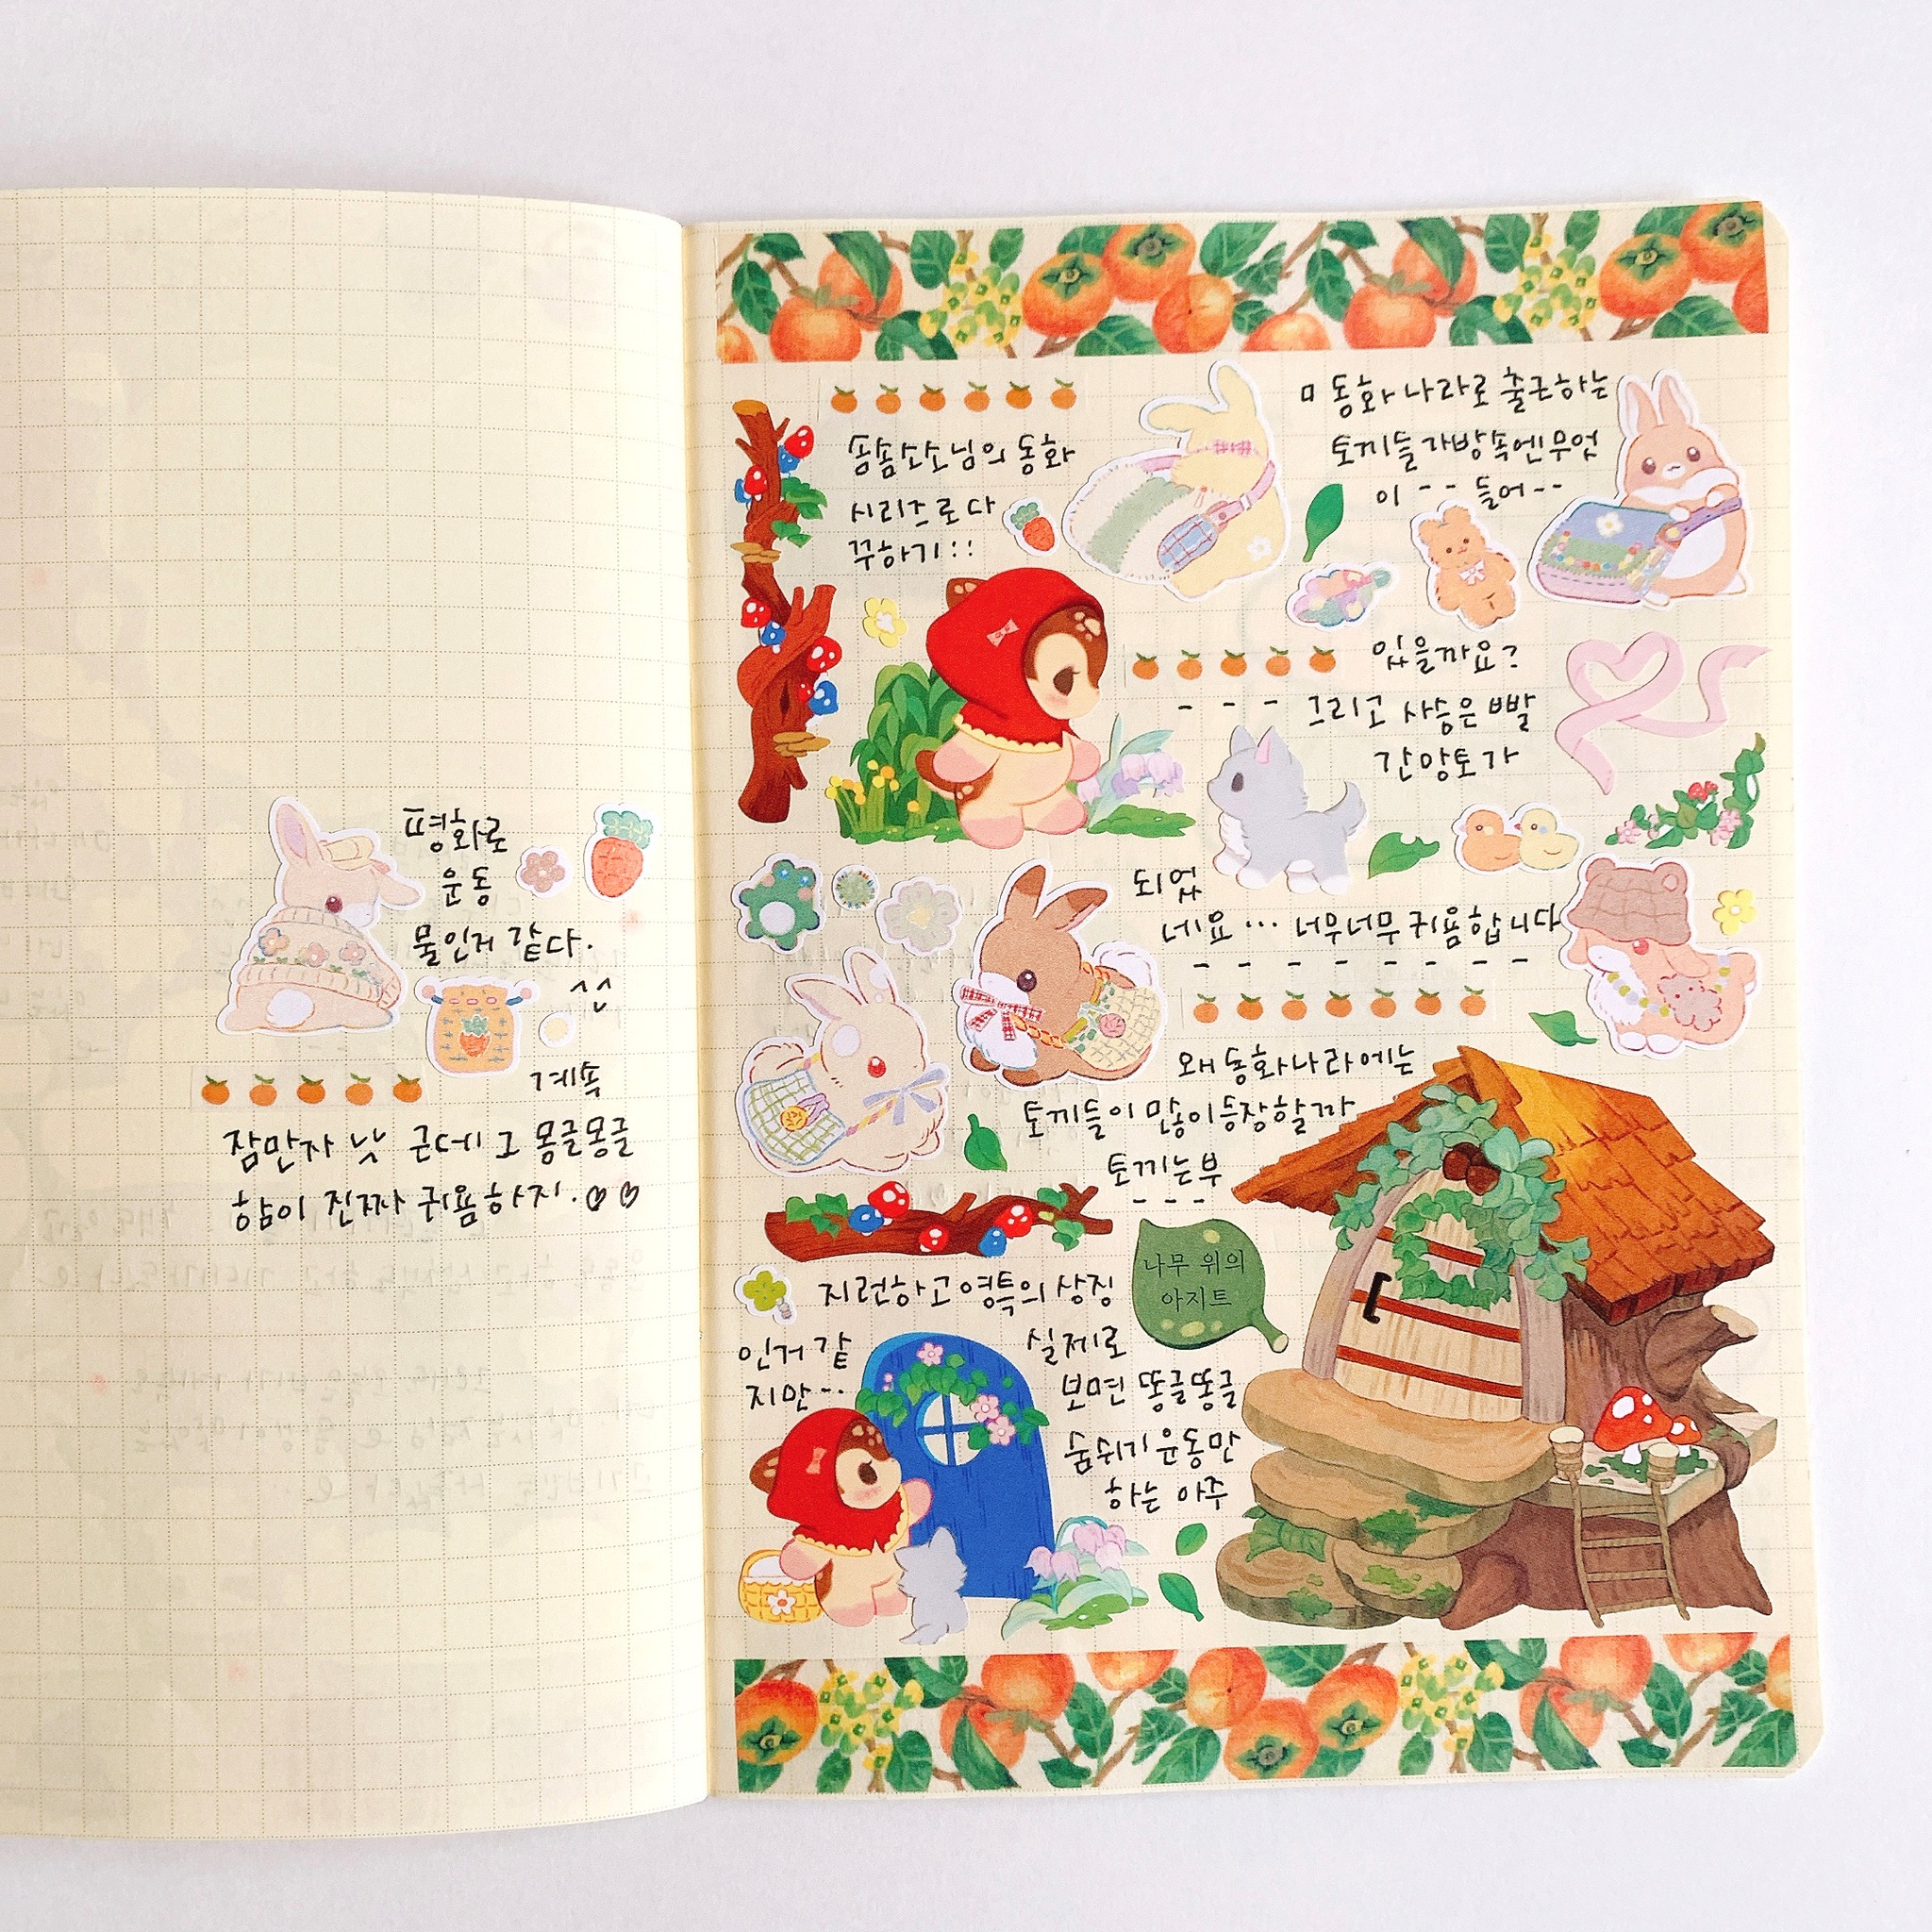 솜솜쏘쏘님의 동화
시리즈로 다
꾸하기::
ㅁ 동화 나라로 출근하는
토끼들 가방속엔 무엇
이 -- 들어--
있을까요?
--- 그리고 사슴은 빨
간망토가
되었
네요... 너무너무 귀욤합니다
왜 동화나라에는
토끼들이 많이 등장할까
토끼는 부
지런하고 영특의 상징
인거 같
지만--
나무 위의
아지트
실제로
보면 똥글똥글
숨쉬기 운동만
하는 아주
평화로
운 동
물인거 같다.
계속
잠만자 낫 근데 그 몽글몽글
함이 진짜 귀욤하지. ♡♡